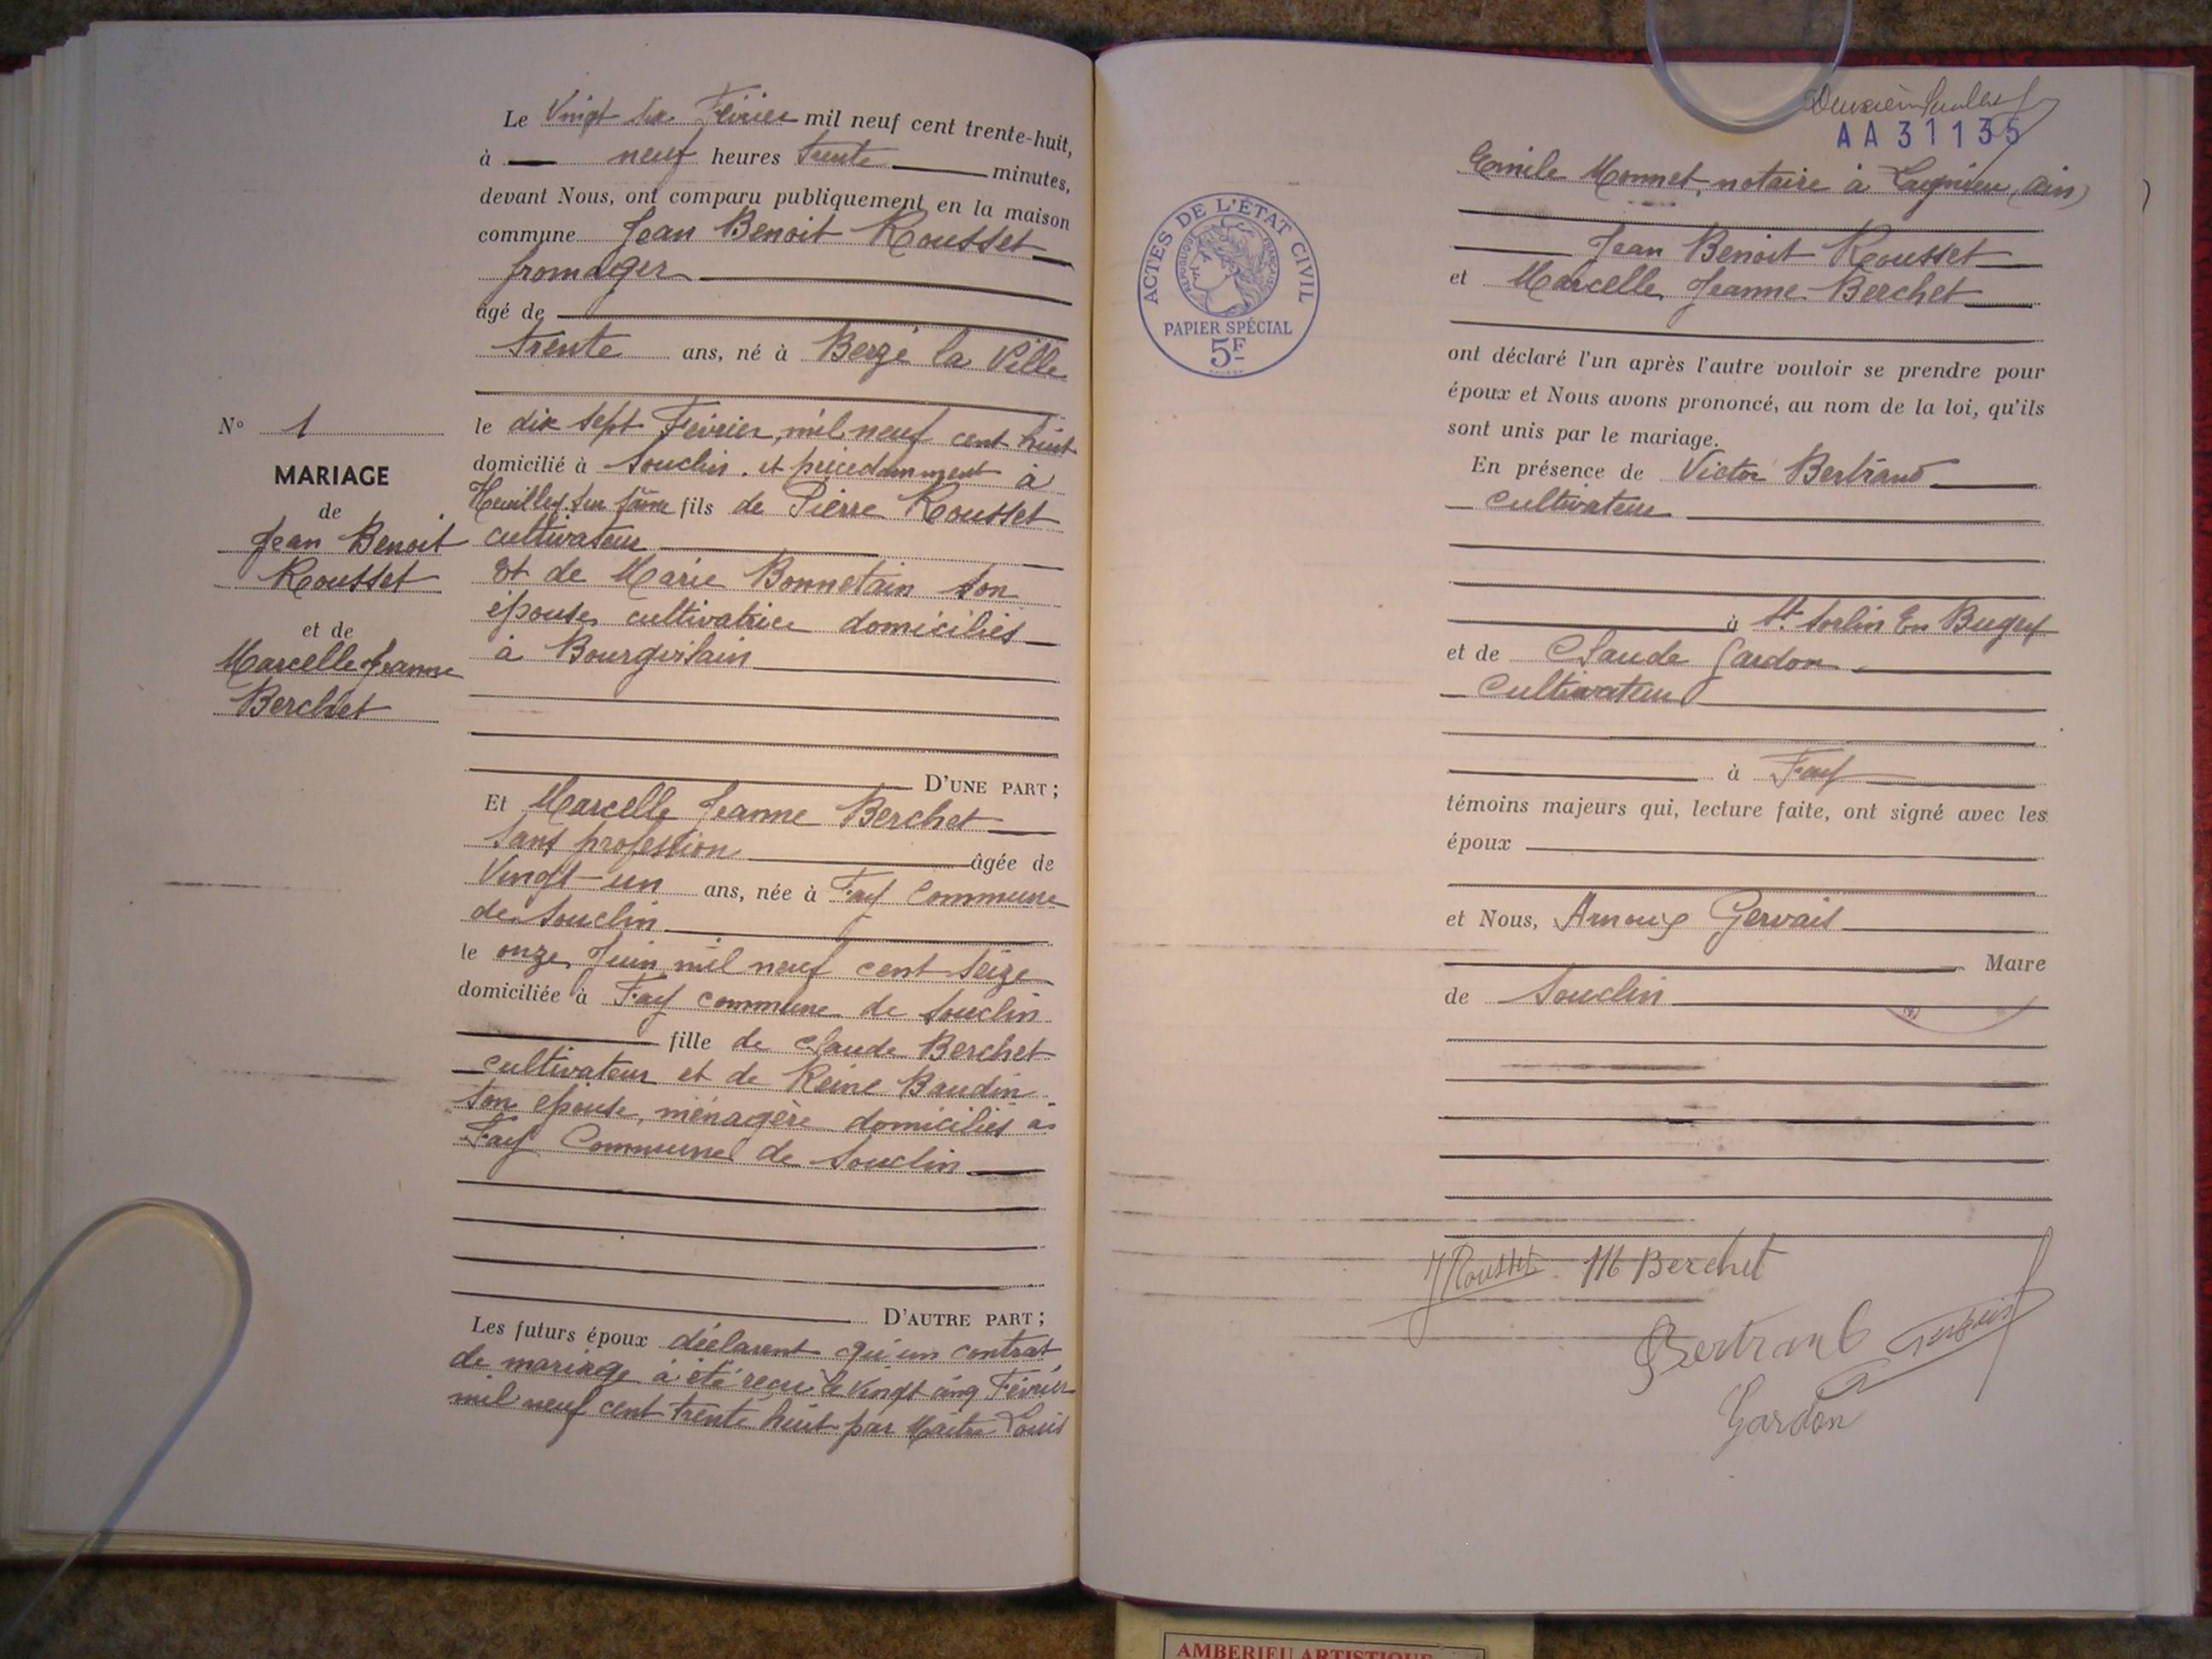 Le Vingt six Février mil neuf cent trente-huit,
à neuf heures trente minutes,
devant Nous, ont comparu publiquement en la maison
commune Jean Benoit Rousset
fromager
âgé de
trente ans, né à Berzé la Ville
le dix sept Février mil neuf cent huit
domicilié à Souclin et précédemment à
sur fils de Pierre Rousset
cultivateur
Et de Marie Bonnetain son
épouse cultivatrice domiciliés
à Bourgvilain
D'UNE PART ;
Et Marcelle Jeanne Berchet
sans profession âgée de
Vingt-un ans, née à Fay Commune
de Souclin
le onze Juin mil neuf cent seize
domiciliée à Fay commune de Souclin
fille de Claude Berchet
cultivateur et de Reine Baudin
son épouse, ménagère domiciliés à
Fay Commune de Souclin
D'AUTRE PART ;
Les futurs époux déclarent qu'un contrat
de mariage a été reçu le Vingt cinq Février
mil neuf cent trente huit par Maître Louis
N° 1
MARIAGE
de
Jean Benoit
Rousset
et de
Marcelle Jeanne
Berchet
AA 31135
Emile Monnet, notaire à Lagnieu (Ain)
Jean Benoit Rousset
et Marcelle Jeanne Berchet
ont déclaré l'un après l'autre vouloir se prendre pour
époux et Nous avons prononcé, au nom de la loi, qu'ils
sont unis par le mariage.
En présence de Victor Bertrand
cultivateur
à St Sorlin En Bugey
et de Claude Gardon
Cultivateur
à Fay
témoins majeurs qui, lecture faite, ont signé avec les
époux
et Nous, Arnoux Gervais
Maire
de Souclin
J Rousset M Berchet
Bertrand Gervais
Gardon
ACTES DE L'ÉTAT CIVIL
RÉPUBLIQUE FRANÇAISE
PAPIER SPÉCIAL
5F
AMBERIEU ARTISTIQUE